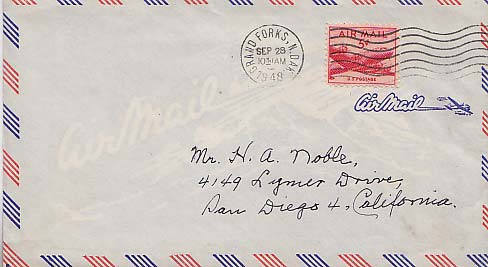 GRAND FORKS, N.DAK.
SEP 28
1948
AIR MAIL
5¢
U.S. POSTAGE
Air Mail
Air Mail
Mr. H. A. Noble,
4149 Lymer Drive,
San Diego 4, California.